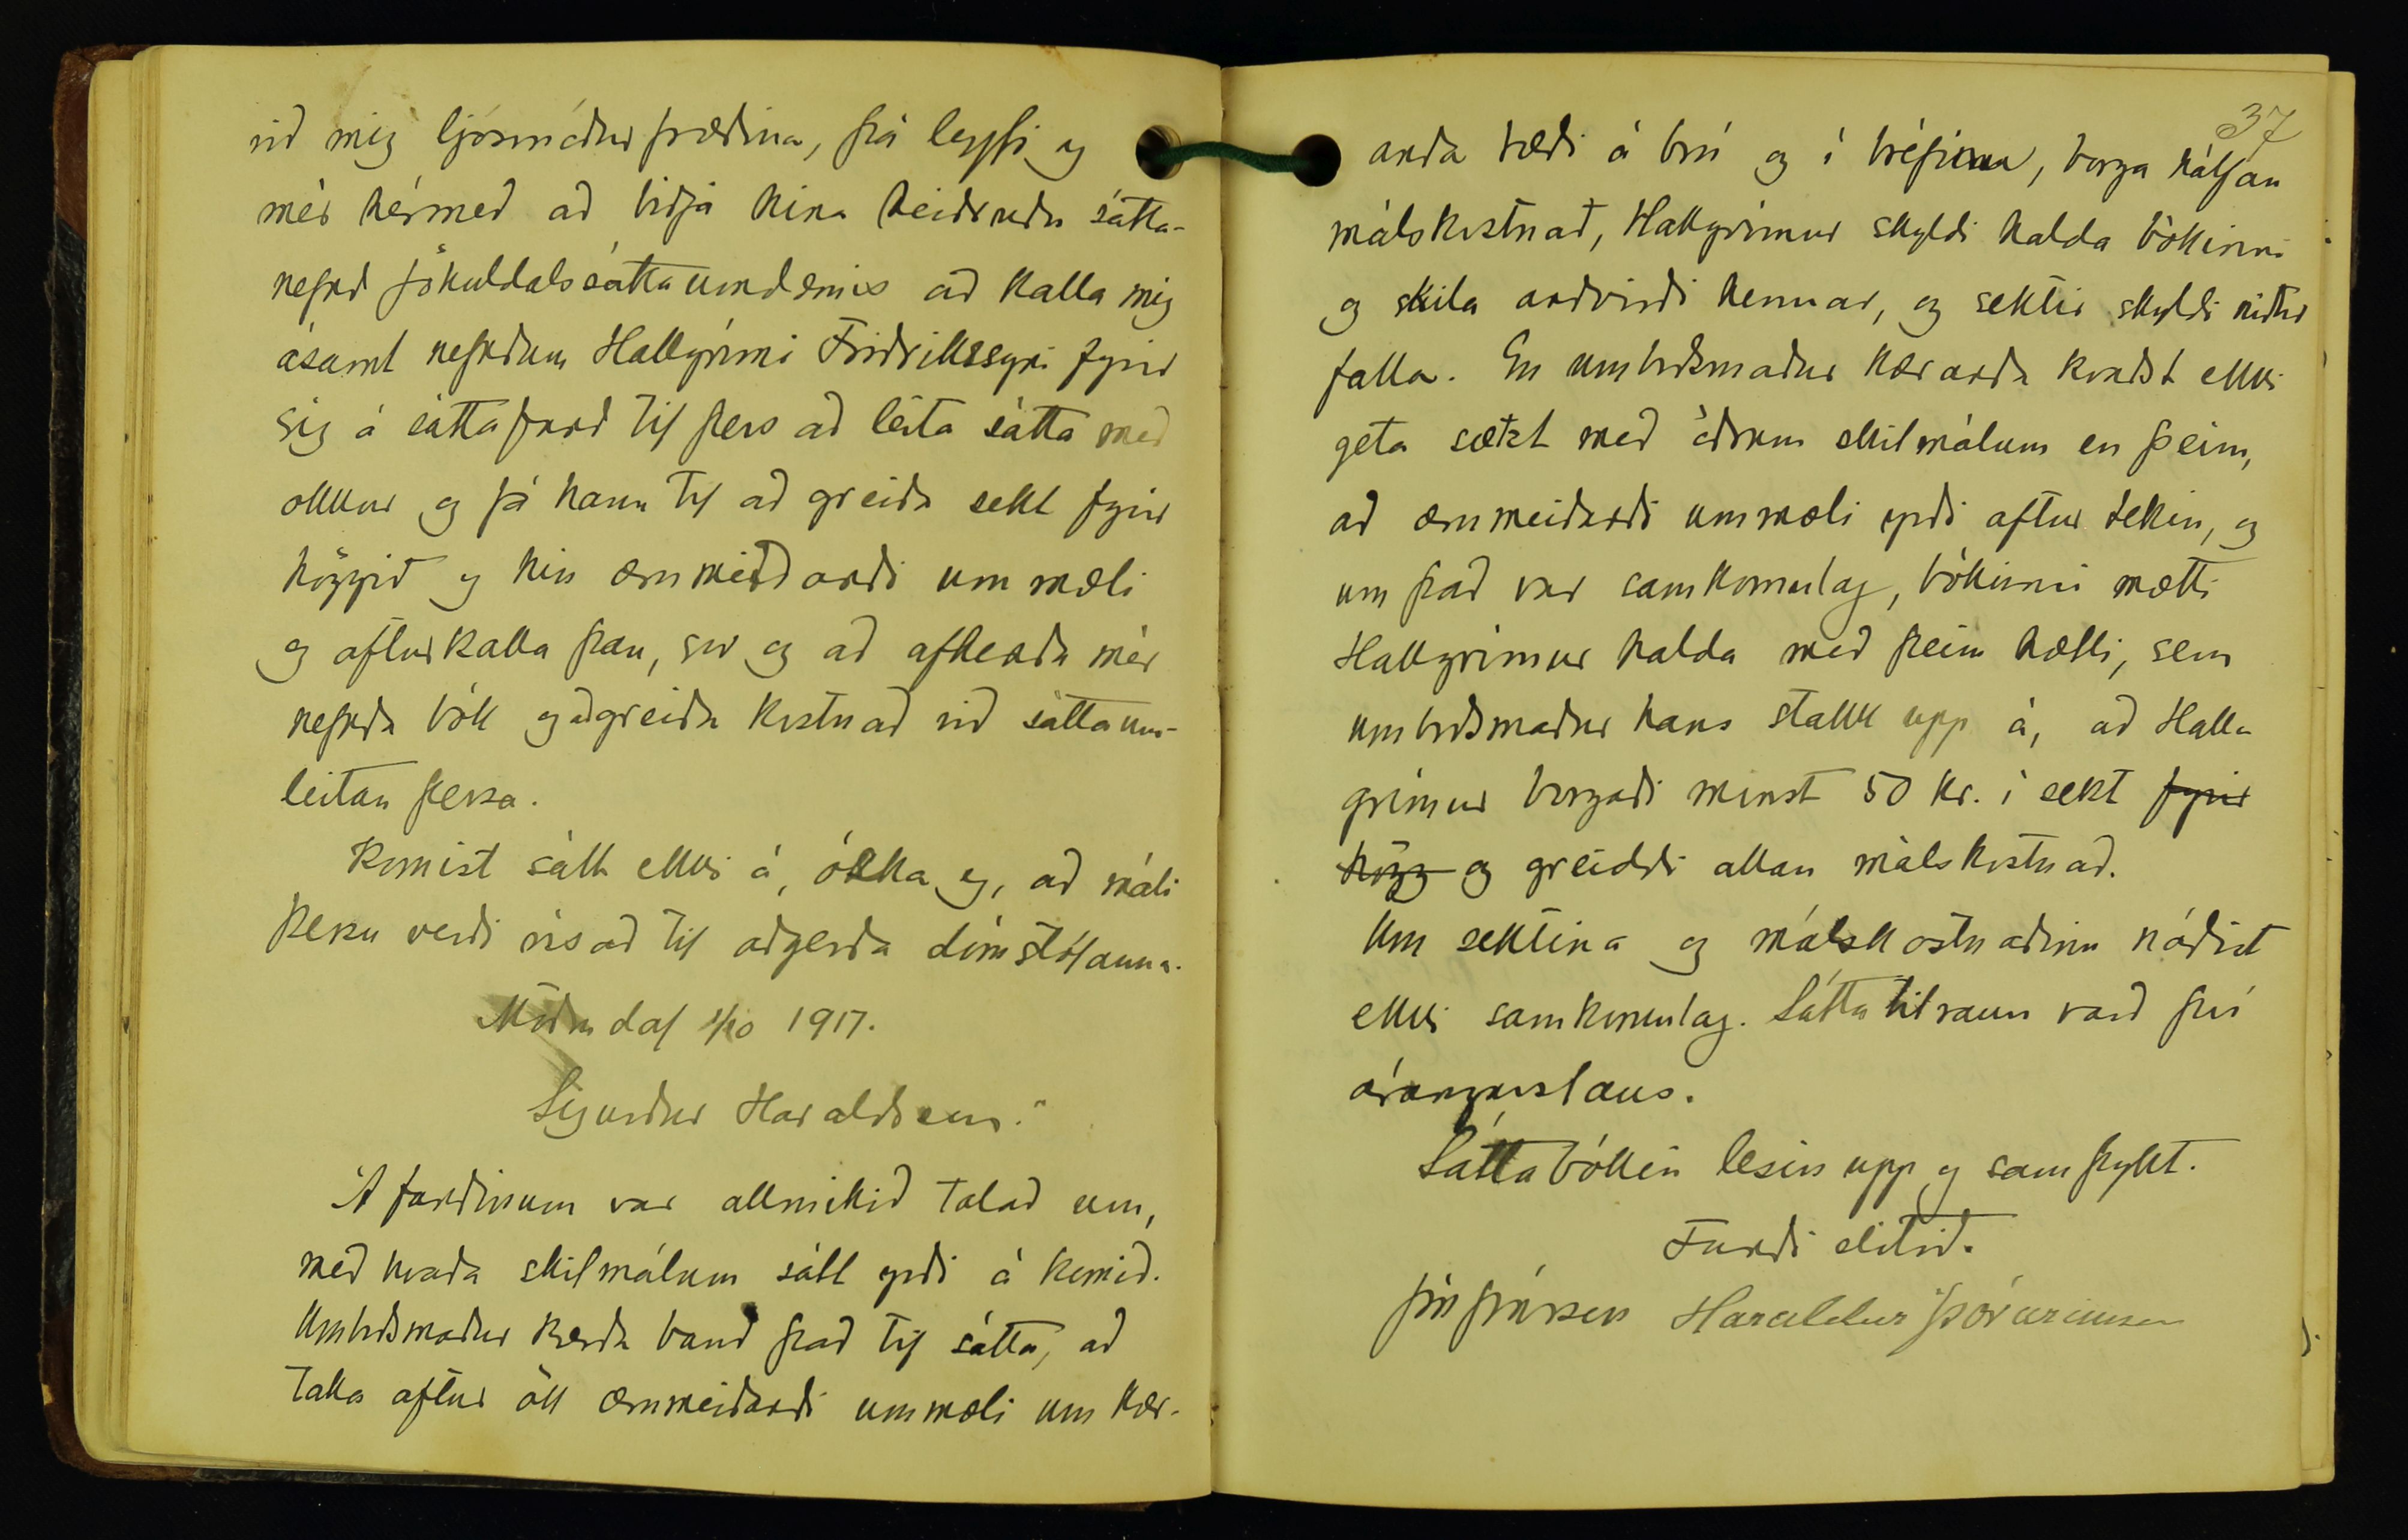 við mig ljósmóðurfræðina, þá leyfi eg
mér hérmeð að biðja hina heiðruðu sátta-
nefnd Jökuldalssáttaumdæmis að kalla mig
ásamt nefndum Hallgrími Friðrikssyni fyrir
sig á sáttafund til þess að leita sátta með
okkur og fá hann til að greiða sekt fyrir
höggið og hin ærumeiðandi ummæli
og afturkalla þau, svo og að afhenda mér
nefnda bók og að greiða kostnað við sáttaum-
leitan þessa.
Komist sátt ekki á, óska eg, að máli
þessu verði vísað til aðgerða dómstólanna.
Möðrudal 1/10 1917.
Sigurður Haraldsson."
Á fundinum var allmikið talað um,
með hvaða skilmálum sátt yrði á komið.
Umboðsmaður kærða bauð það til sátta, að
taka aftur öll ærumeiðandi ummæli um kær-
37
anda bæði á brú og í bréfinu, borga hálfan
málskostnað, Hallgrímur skyldi halda bókinni
og skila andvirði hennar, og sektir skyldi niður
falla. En umboðsmaður kæranda kvaðst ekki
geta sætzt með öðrum skilmálum en þeim,
að ærumeiðandi ummæli yrði aftur tekin, og
um það var samkomulag, bókinni mætti
Hallgrímur halda með þeim hætti, sem
umboðsmaður hans stakk upp á, að Hall-
grímur borgaði minst 50 kr. í sekt fyrir
högg og greiddi allan málskostnað.
Um sektina og málskostnaðinn náðist
ekki samkomulag. Sáttatilraun varð því
árangurslaus.
Sáttabókin lesin upp og samþykt.
Fundi slitið.
Haraldur Þórarinsson